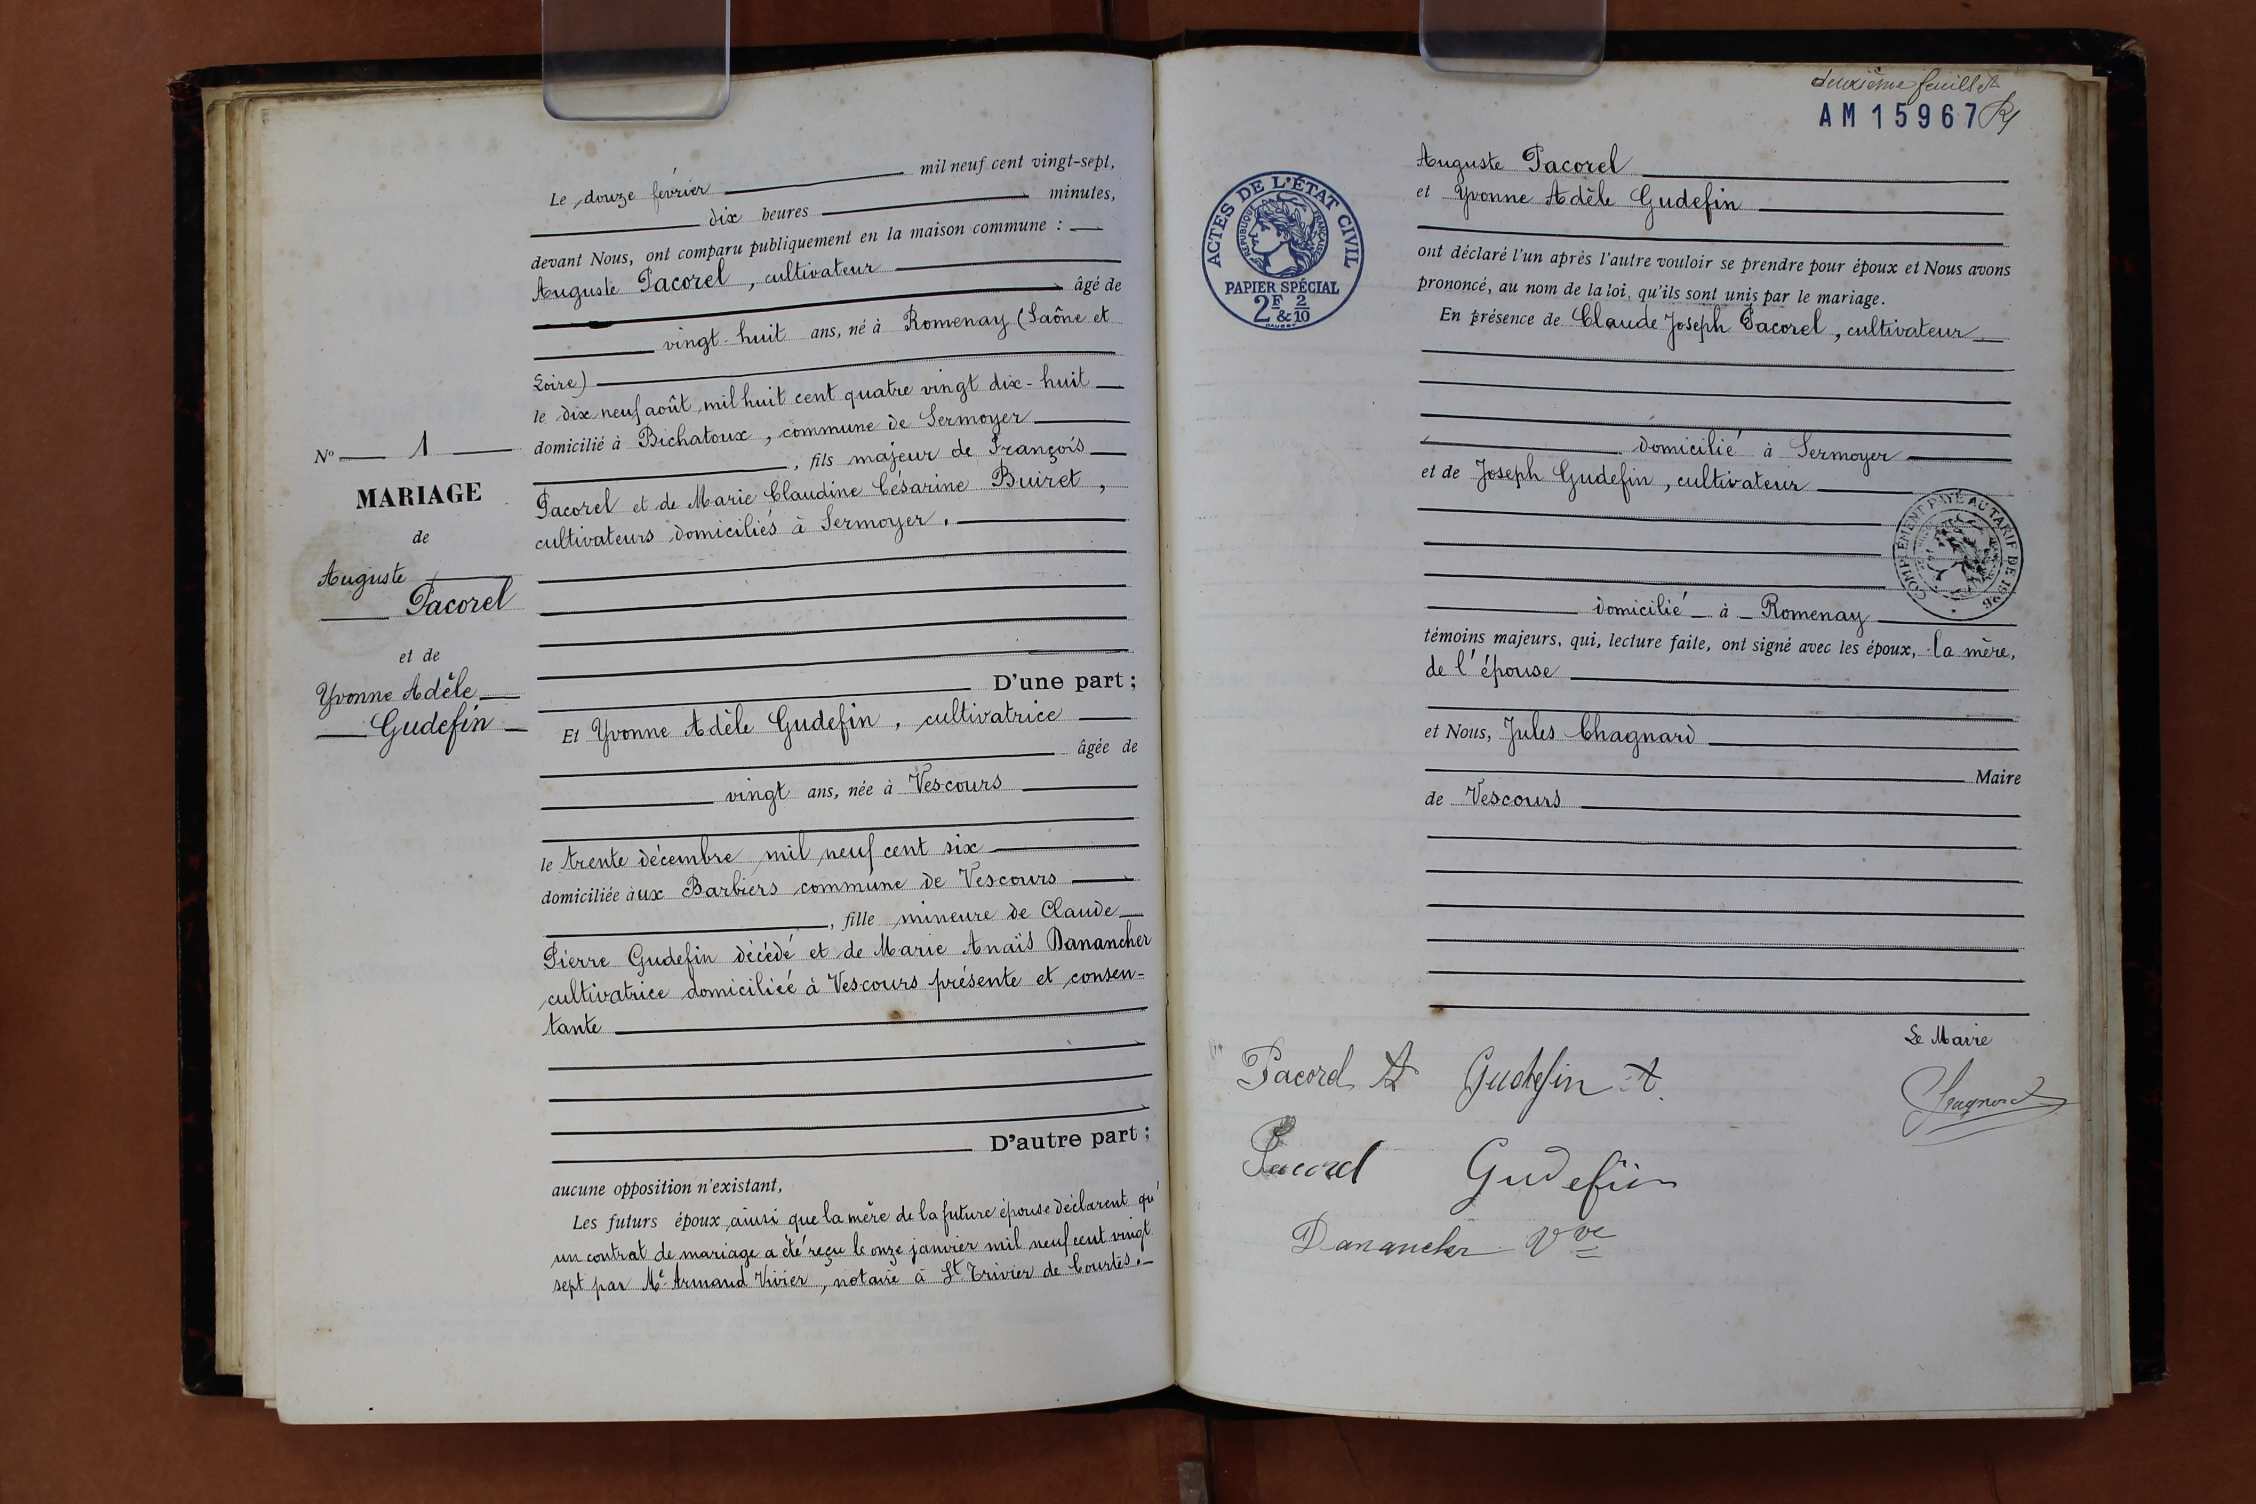 Le douze février mil neuf cent vingt-sept,
dix heures minutes,
devant Nous, ont comparu publiquement en la maison commune :
Auguste Pacorel, cultivateur
âgé de
vingt-huit ans, né à Romenay (Saône et
Loire)
le dix neuf août mil huit cent quatre vingt dix-huit
domicilié à Bichatoux, commune de Sermoyer
, fils majeur de François
Pacorel et de Marie Claudine Césarine Buiret,
cultivateurs domiciliés à Sermoyer.
D'une part ;
Et Yvonne Adèle Gudefin, cultivatrice
âgée de
vingt ans, née à Vescours
le trente décembre mil neuf cent six
domiciliée aux Barbiers commune de Vescours
, fille mineure de Claude
Pierre Gudefin décédé et de Marie Anaïs Danancher
cultivatrice domiciliée à Vescours présente et consen-
tante
D'autre part ;
aucune opposition n'existant,
Les futurs époux, ainsi que la mère de la future épouse déclarent qu'
un contrat de mariage a été reçu le onze janvier mil neuf cent vingt
sept par Me Armand Vivier, notaire à St Trivier de Courtes.
No 1
MARIAGE
de
Auguste
Pacorel
et de
Yvonne Adèle
Gudefin
deuxième feuillet
AM 15967
ACTES DE L'ÉTAT CIVIL
RÉPUBLIQUE FRANÇAISE
PAPIER SPÉCIAL
2F & 2/10
Auguste Pacorel
et Yvonne Adèle Gudefin
ont déclaré l'un après l'autre vouloir se prendre pour époux et Nous avons
prononcé, au nom de la loi, qu'ils sont unis par le mariage.
En présence de Claude Joseph Pacorel, cultivateur
domicilié à Sermoyer
et de Joseph Gudefin, cultivateur
COMPLÉMENT PAYÉ AU TARIF DE 1926
domicilié à Romenay
témoins majeurs, qui, lecture faite, ont signé avec les époux, la mère,
de l'épouse
et Nous, Jules Chagnard
Maire
de Vescours
Le Maire
Pacorel A Gudefin A.
Chagnard
Pacorel Gudefin
Danancher Vve